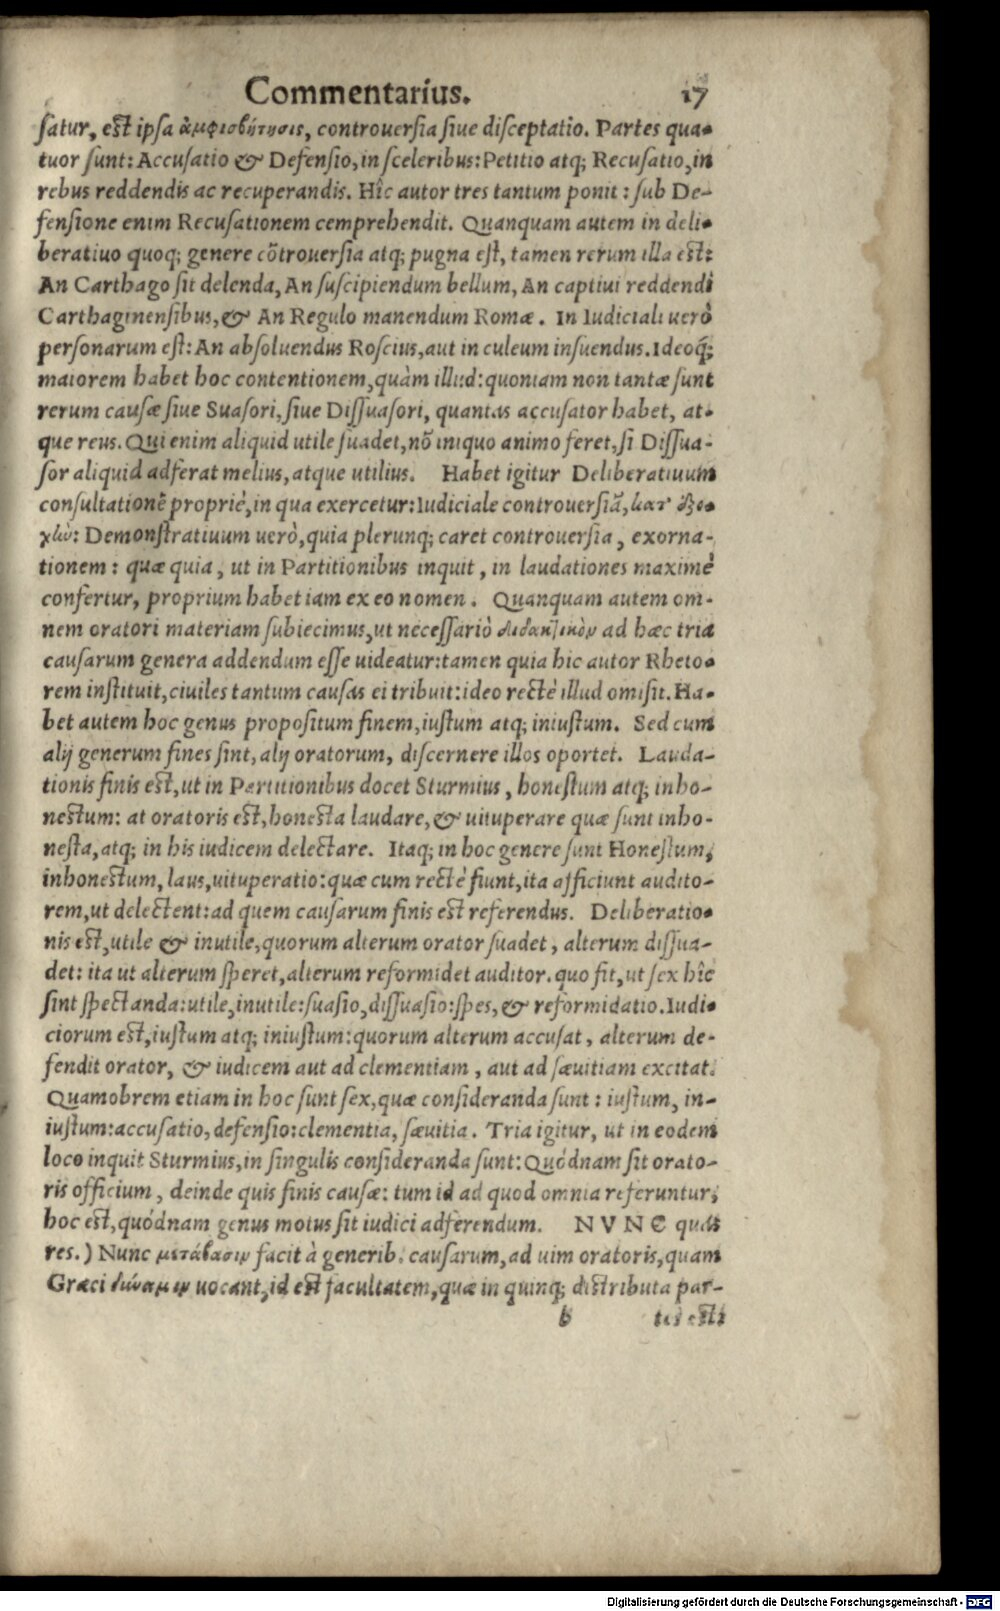 Commentarius. 17
ſatur, eſt ipſa ἀμφισβήτησις, controuerſia ſiue diſceptatio. Partes qua-
tuor ſunt: Accuſatio & Defenſio, in ſceleribus: Petitio atq; Recuſatio, in
rebus reddendis ac recuperandis. Hîc autor tres tantum ponit: ſub De-
fenſione enim Recuſationem cemprehendit. Quanquam autem in deli-
beratiuo quoq; genere cõtrouerſia atq; pugna eſt, tamen rerum illa eſt:
An Carthago ſit delenda, An ſuſcipiendum bellum, An captiui reddendi
Carthaginenſibus, & An Regulo manendum Romæ. In Iudiciali uerò
perſonarum eſt: An abſoluendus Roſcius, aut in culeum inſuendus. Ideoq́;
maiorem habet hoc contentionem, quàm illud: quoniam non tantæ ſunt
rerum cauſæ ſiue Suaſori, ſiue Diſſuaſori, quantas accuſator habet, at-
que reus. Qui enim aliquid utile ſuadet, nõ iniquo animo feret, ſi Diſſua-
ſor aliquid adferat melius, atque utilius. Habet igitur Deliberatiuum
conſultationẽ propriè, in qua exercetur: Iudiciale controuerſiã, κατ' ἐξο-
χὴν: Demonſtratiuum uerò, quia plerunq; caret controuerſia, exorna-
tionem: quæ quia, ut in Partitionibus inquit, in laudationes maximè
confertur, proprium habet iam ex eo nomen. Quanquam autem om-
nem oratori materiam ſubiecimus, ut neceſſariò διδακτικὸν ad hæc tria
cauſarum genera addendum eſſe uideatur: tamen quia hic autor Rheto-
rem inſtituit, ciuiles tantum cauſas ei tribuit: ideo rectè illud omiſit. Ha-
bet autem hoc genus propoſitum finem, iuſtum atq; iniuſtum. Sed cum
alij generum fines ſint, alij oratorum, diſcernere illos oportet. Lauda-
tionis finis eſt, ut in Partitionibus docet Sturmius, honeſtum atq; inho-
neſtum: at oratoris eſt, honeſta laudare, & uituperare quæ ſunt inho-
neſta, atq; in his iudicem delectare. Itaq; in hoc genere ſunt Honeſtum,
inhoneſtum, laus, uituperatio: quæ cum rectè fiunt, ita afficiunt audito-
rem, ut delectent: ad quem cauſarum finis eſt referendus. Deliberatio-
nis eſt, utile & inutile, quorum alterum orator ſuadet, alterum diſſua-
det: ita ut alterum ſperet, alterum reformidet auditor. quo fit, ut ſex hîc
ſint ſpectanda: utile, inutile: ſuaſio, diſſuaſio: ſpes, & reformidatio. Iudi-
ciorum eſt, iuſtum atq; iniuſtum: quorum alterum accuſat, alterum de-
fendit orator, & iudicem aut ad clementiam, aut ad ſæuitiam excitat.
Quamobrem etiam in hoc ſunt ſex, quæ conſideranda ſunt: iuſtum, in-
iuſtum: accuſatio, defenſio: clementia, ſæuitia. Tria igitur, ut in eodem
loco inquit Sturmius, in ſingulis conſideranda ſunt: Quódnam ſit orato-
ris officium, deinde quis finis cauſæ: tum id ad quod omnia referuntur,
hoc eſt, quódnam genus motus ſit iudici adferendum. NVNC quas
res.) Nunc μετάβασιν facit à generib. cauſarum, ad uim oratoris, quam
Græci δύναμιν uocant, id eſt facultatem, quæ in quinq; diſtributa par-
b tes eſt:
Digitalisierung gefördert durch die Deutsche Forschungsgemeinschaft - DFG